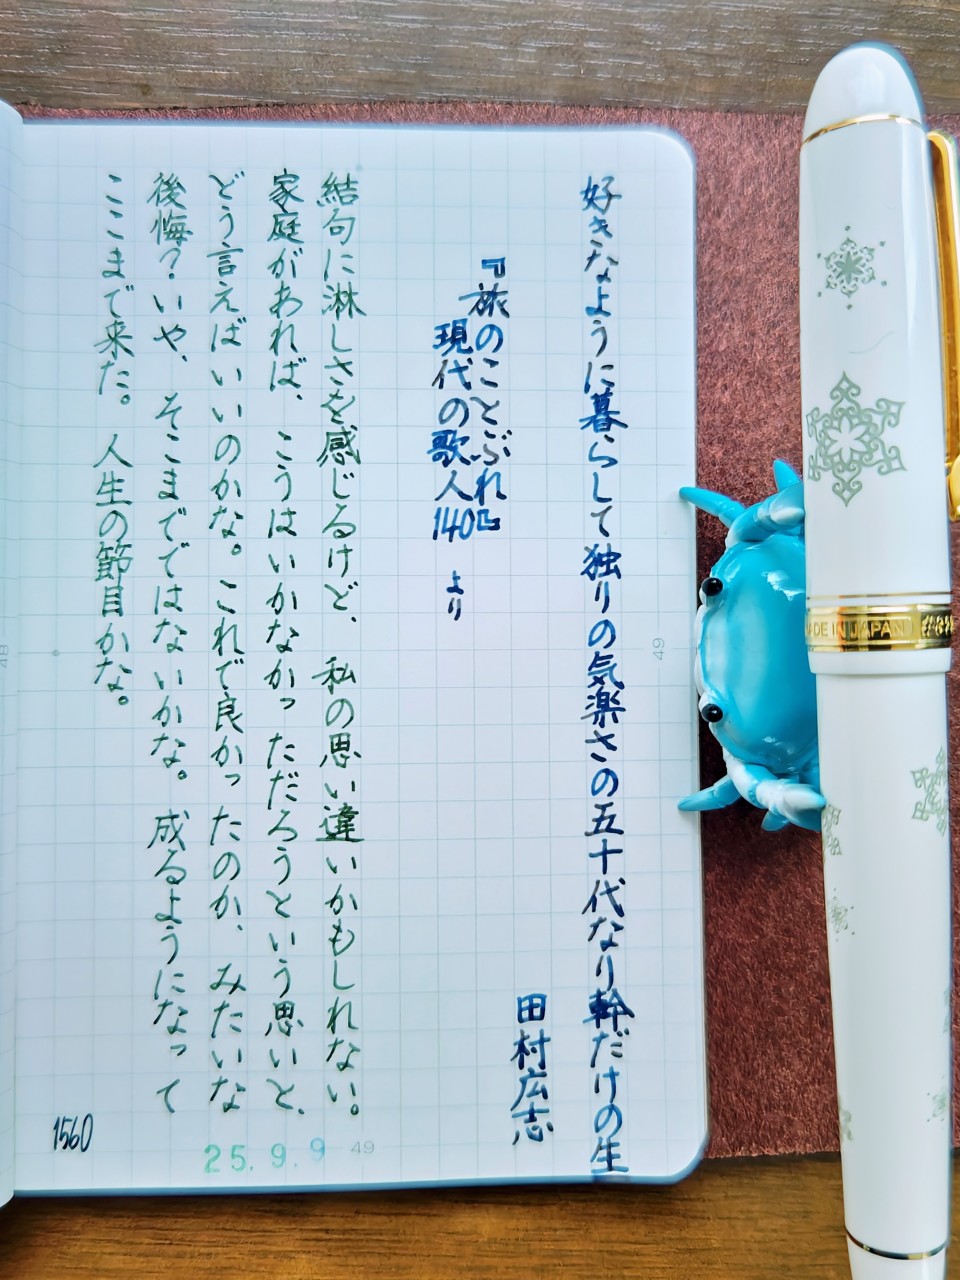 好きなように暮らして独りの気楽さの五十代なり幹だけの生
田村広志
『旅のことぶれ』
現代の歌人140 より
結句に淋しさを感じるけど、私の思い違いかもしれない。
家庭があれば、こうはいかなかっただろうという思いと、
どう言えばいいのかな。これで良かったのか、みたいな
後悔？いや、そこまでではないかな。成るようになって
ここまで来た。人生の節目かな。
1560
25.9.9
49
49
48
MADE IN JAPAN